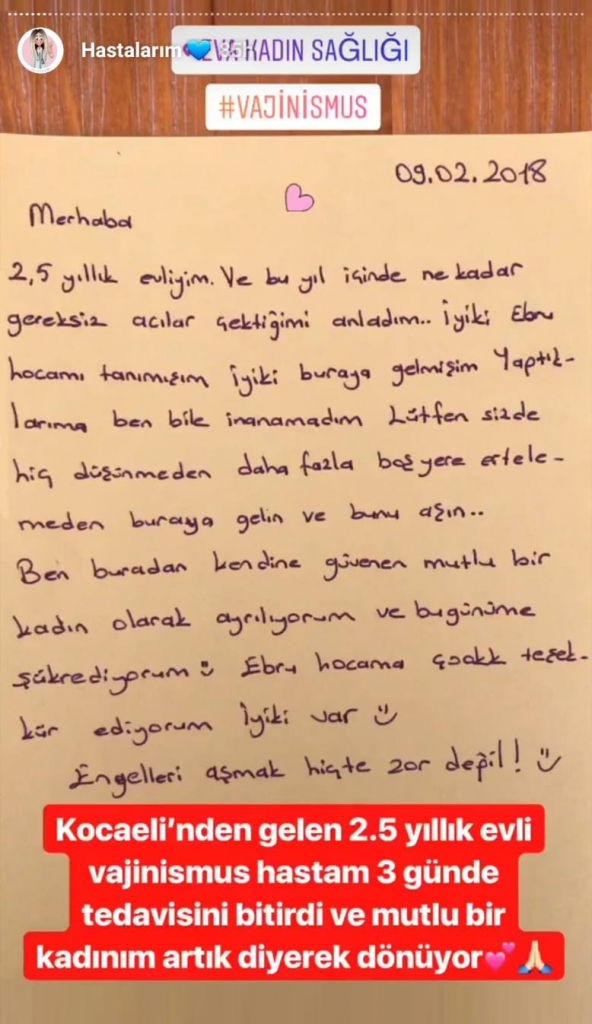 Hastalarım💙
EVA KADIN SAĞLIĞI
#VAJİNİSMUS
09.02.2018
Merhaba
2,5 yıllık evliyim. Ve bu yıl içinde ne kadar
gereksiz acılar çektiğimi anladım.. İyiki Ebru
hocamı tanımışım iyiki buraya gelmişim Yaptık-
larıma ben bile inanamadım Lütfen sizde
hiç düşünmeden daha fazla boş yere ertele-
meden buraya gelin ve bunu aşın..
Ben buradan kendine güvenen mutlu bir
kadın olarak ayrılıyorum ve bugünüme
şükrediyorum☺ Ebru hocama çookk teşek-
kür ediyorum İyiki var ☺
Engelleri aşmak hiçte zor değil! ☺
Kocaeli’nden gelen 2.5 yıllık evli
vajinismus hastam 3 günde
tedavisini bitirdi ve mutlu bir
kadınım artık diyerek dönüyor💕🙏🏻